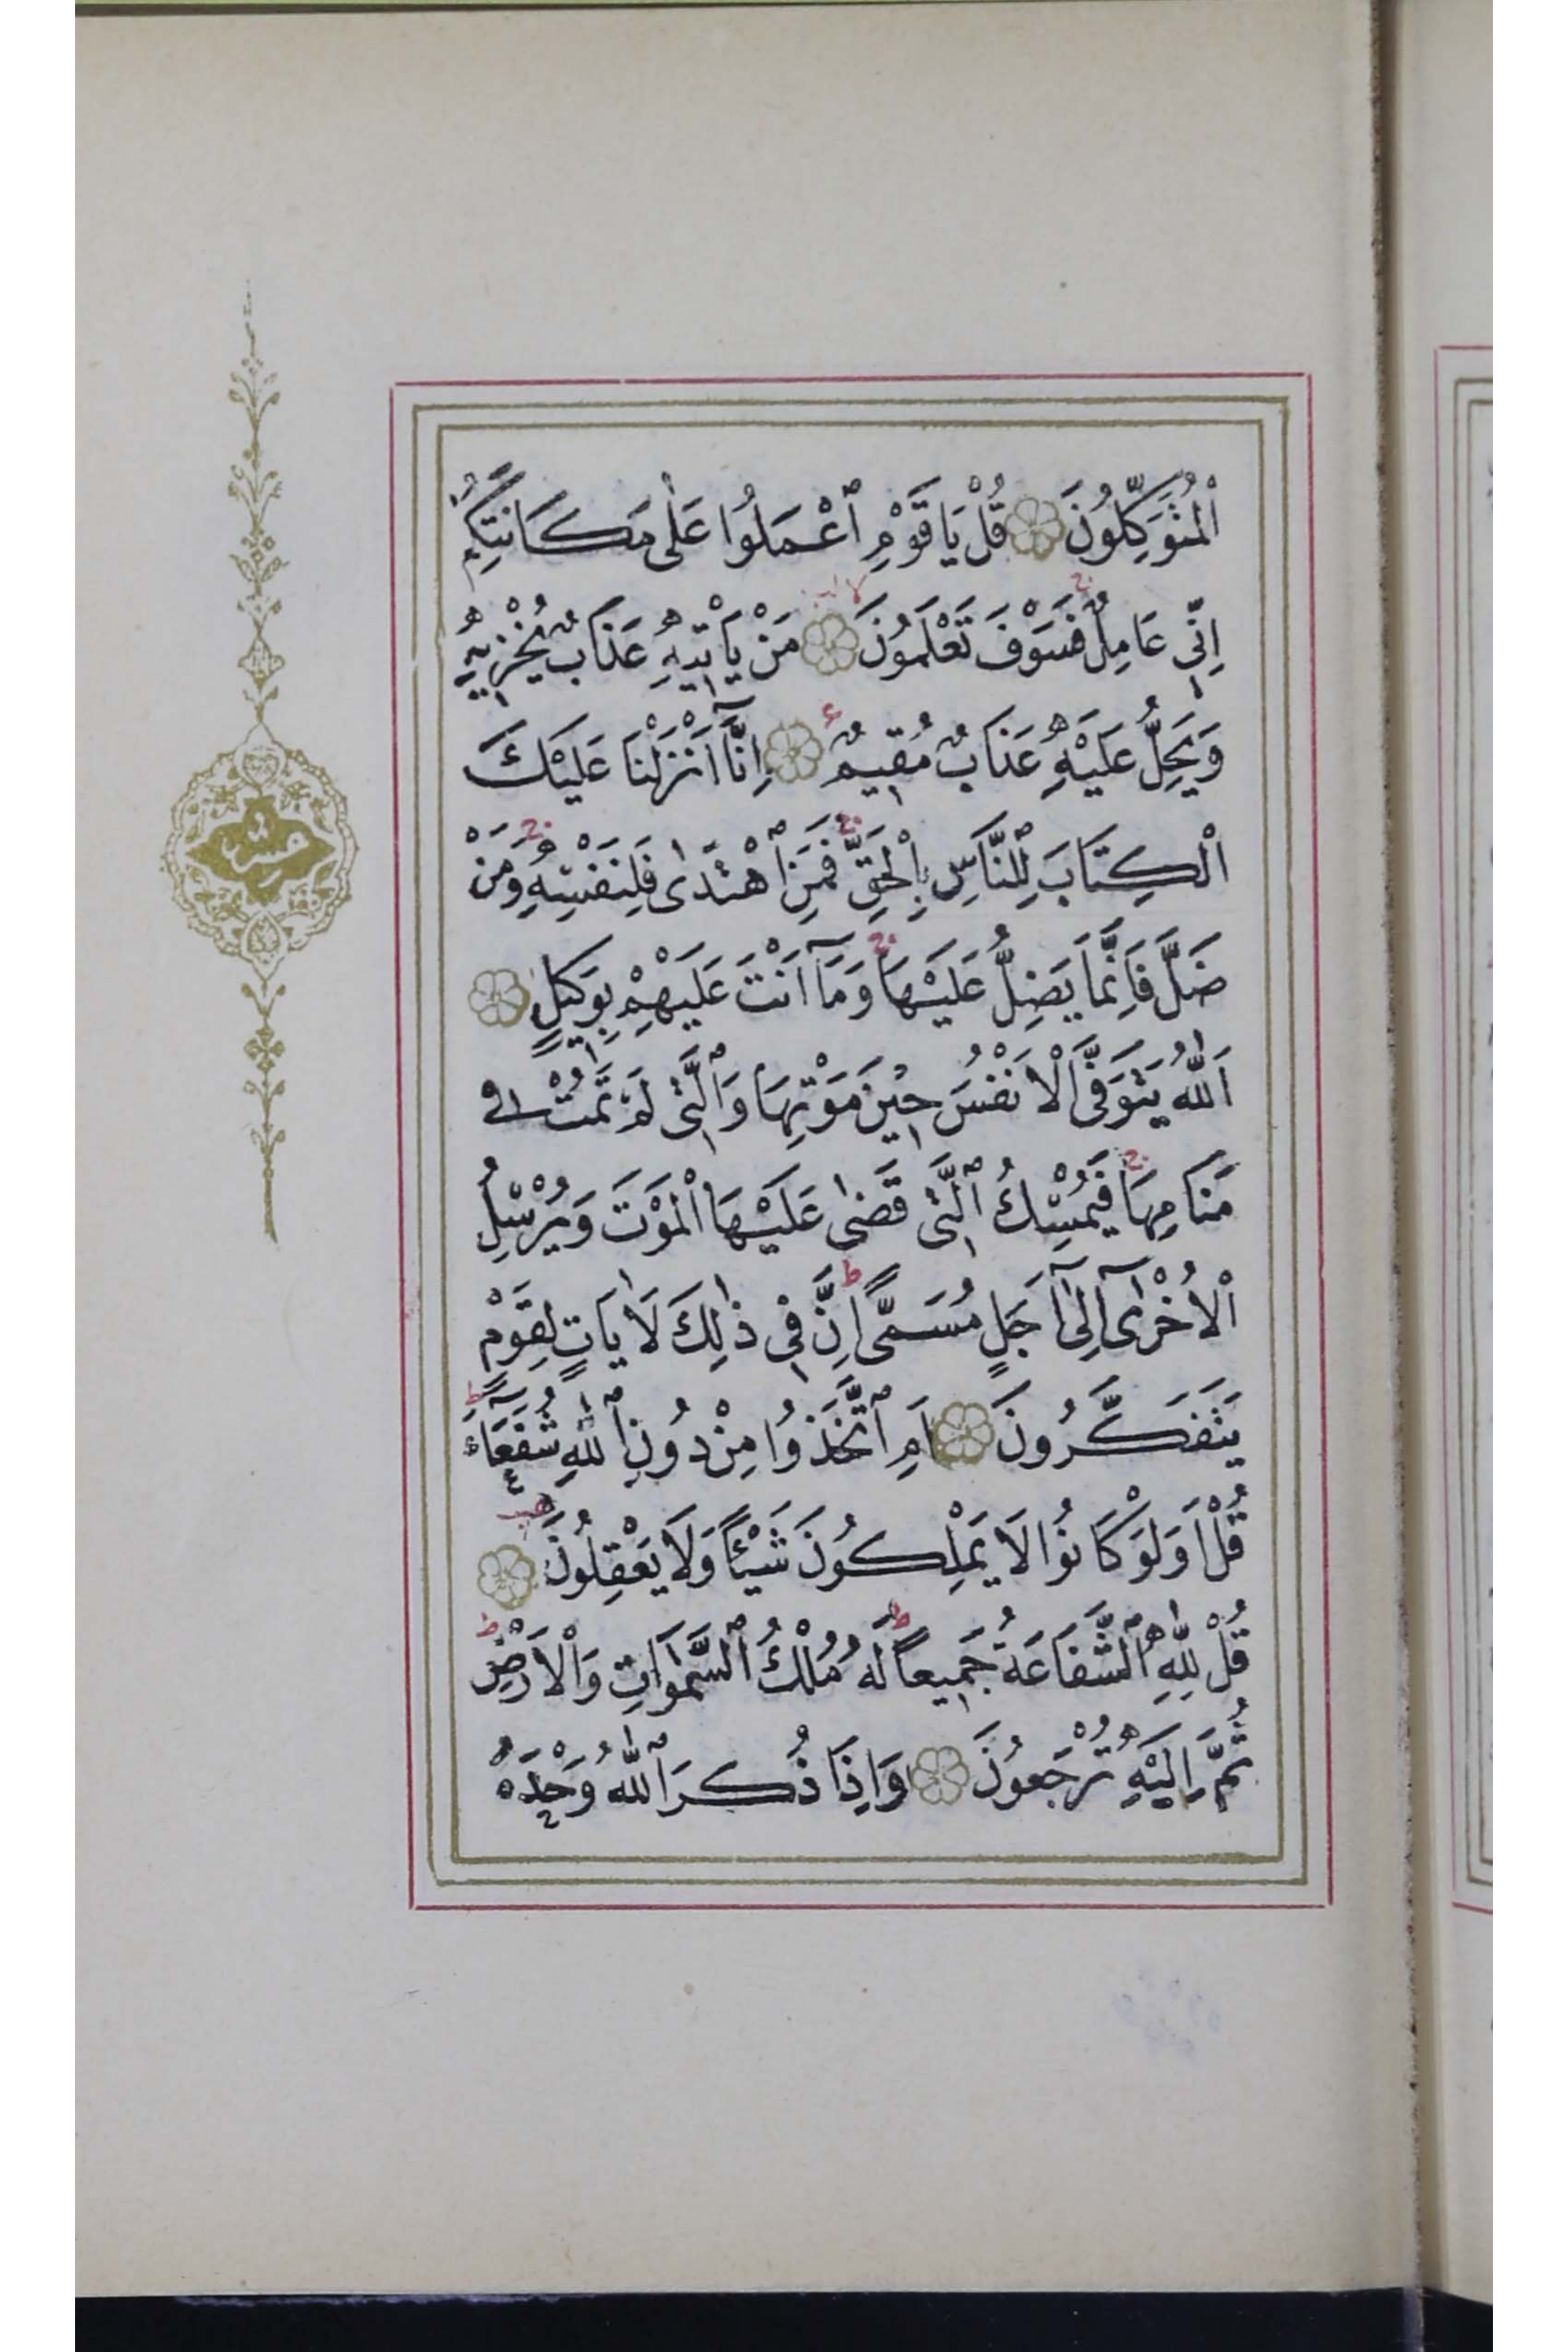 اَلْمُتَوَكِّلُونَ قُلْ يَا قَوْمِ ٱعْمَلُوا عَلٰى مَكَانَتِكُمْ
اِنّٖي عَامِلٌ فَسَوْفَ تَعْلَمُونَ مَنْ يَأْتٖيهِ عَذَابٌ يُخْزٖيهِ
وَيَحِلُّ عَلَيْهِ عَذَابٌ مُقٖيمٌ اِنَّٓا اَنْزَلْنَا عَلَيْكَ
الْكِتَابَ لِلنَّاسِ بِالْحَقِّ فَمَنِ ٱهْتَدٰى فَلِنَفْسِهِ وَمَنْ
ضَلَّ فَاِنَّمَا يَضِلُّ عَلَيْهَا وَمَٓا اَنْتَ عَلَيْهِمْ بِوَكٖيلٍ
اَللّٰهُ يَتَوَفَّى الْاَنْفُسَ حٖينَ مَوْتِهَا وَالَّتٖي لَمْ تَمُتْ فٖي
مَنَامِهَا فَيُمْسِكُ ٱلَّتٖي قَضٰى عَلَيْهَا الْمَوْتَ وَيُرْسِلُ
الْاُخْرٰٓى اِلٰٓى اَجَلٍ مُسَمًّى اِنَّ فٖي ذٰلِكَ لَاٰيَاتٍ لِقَوْمٍ
يَتَفَكَّرُونَ اَمِ ٱتَّخَذُوا مِنْ دُونِ ٱللّٰهِ شُفَعَٓاءَ
قُلْ اَوَلَوْ كَانُوا لَا يَمْلِكُونَ شَيْئًا وَلَا يَعْقِلُونَ
قُلْ لِلّٰهِ ٱلشَّفَاعَةُ جَمٖيعًا لَهُ مُلْكُ ٱلسَّمٰوَاتِ وَالْاَرْضِ
ثُمَّ اِلَيْهِ تُرْجَعُونَ وَاِذَا ذُكِرَ ٱللّٰهُ وَحْدَهُ